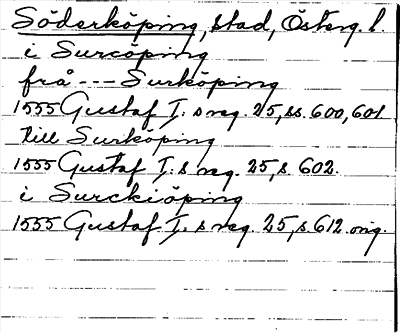 Söderköping, stad, Österg. l.
i Surcöping
frå --- Surköping
1555 Gustaf I:s reg. 25, ss. 600, 601
till Surköping
1555 Gustaf I:s reg. 25, s. 602.
i Surckiöping
1555 Gustaf I:s reg. 25, s. 612 orig.